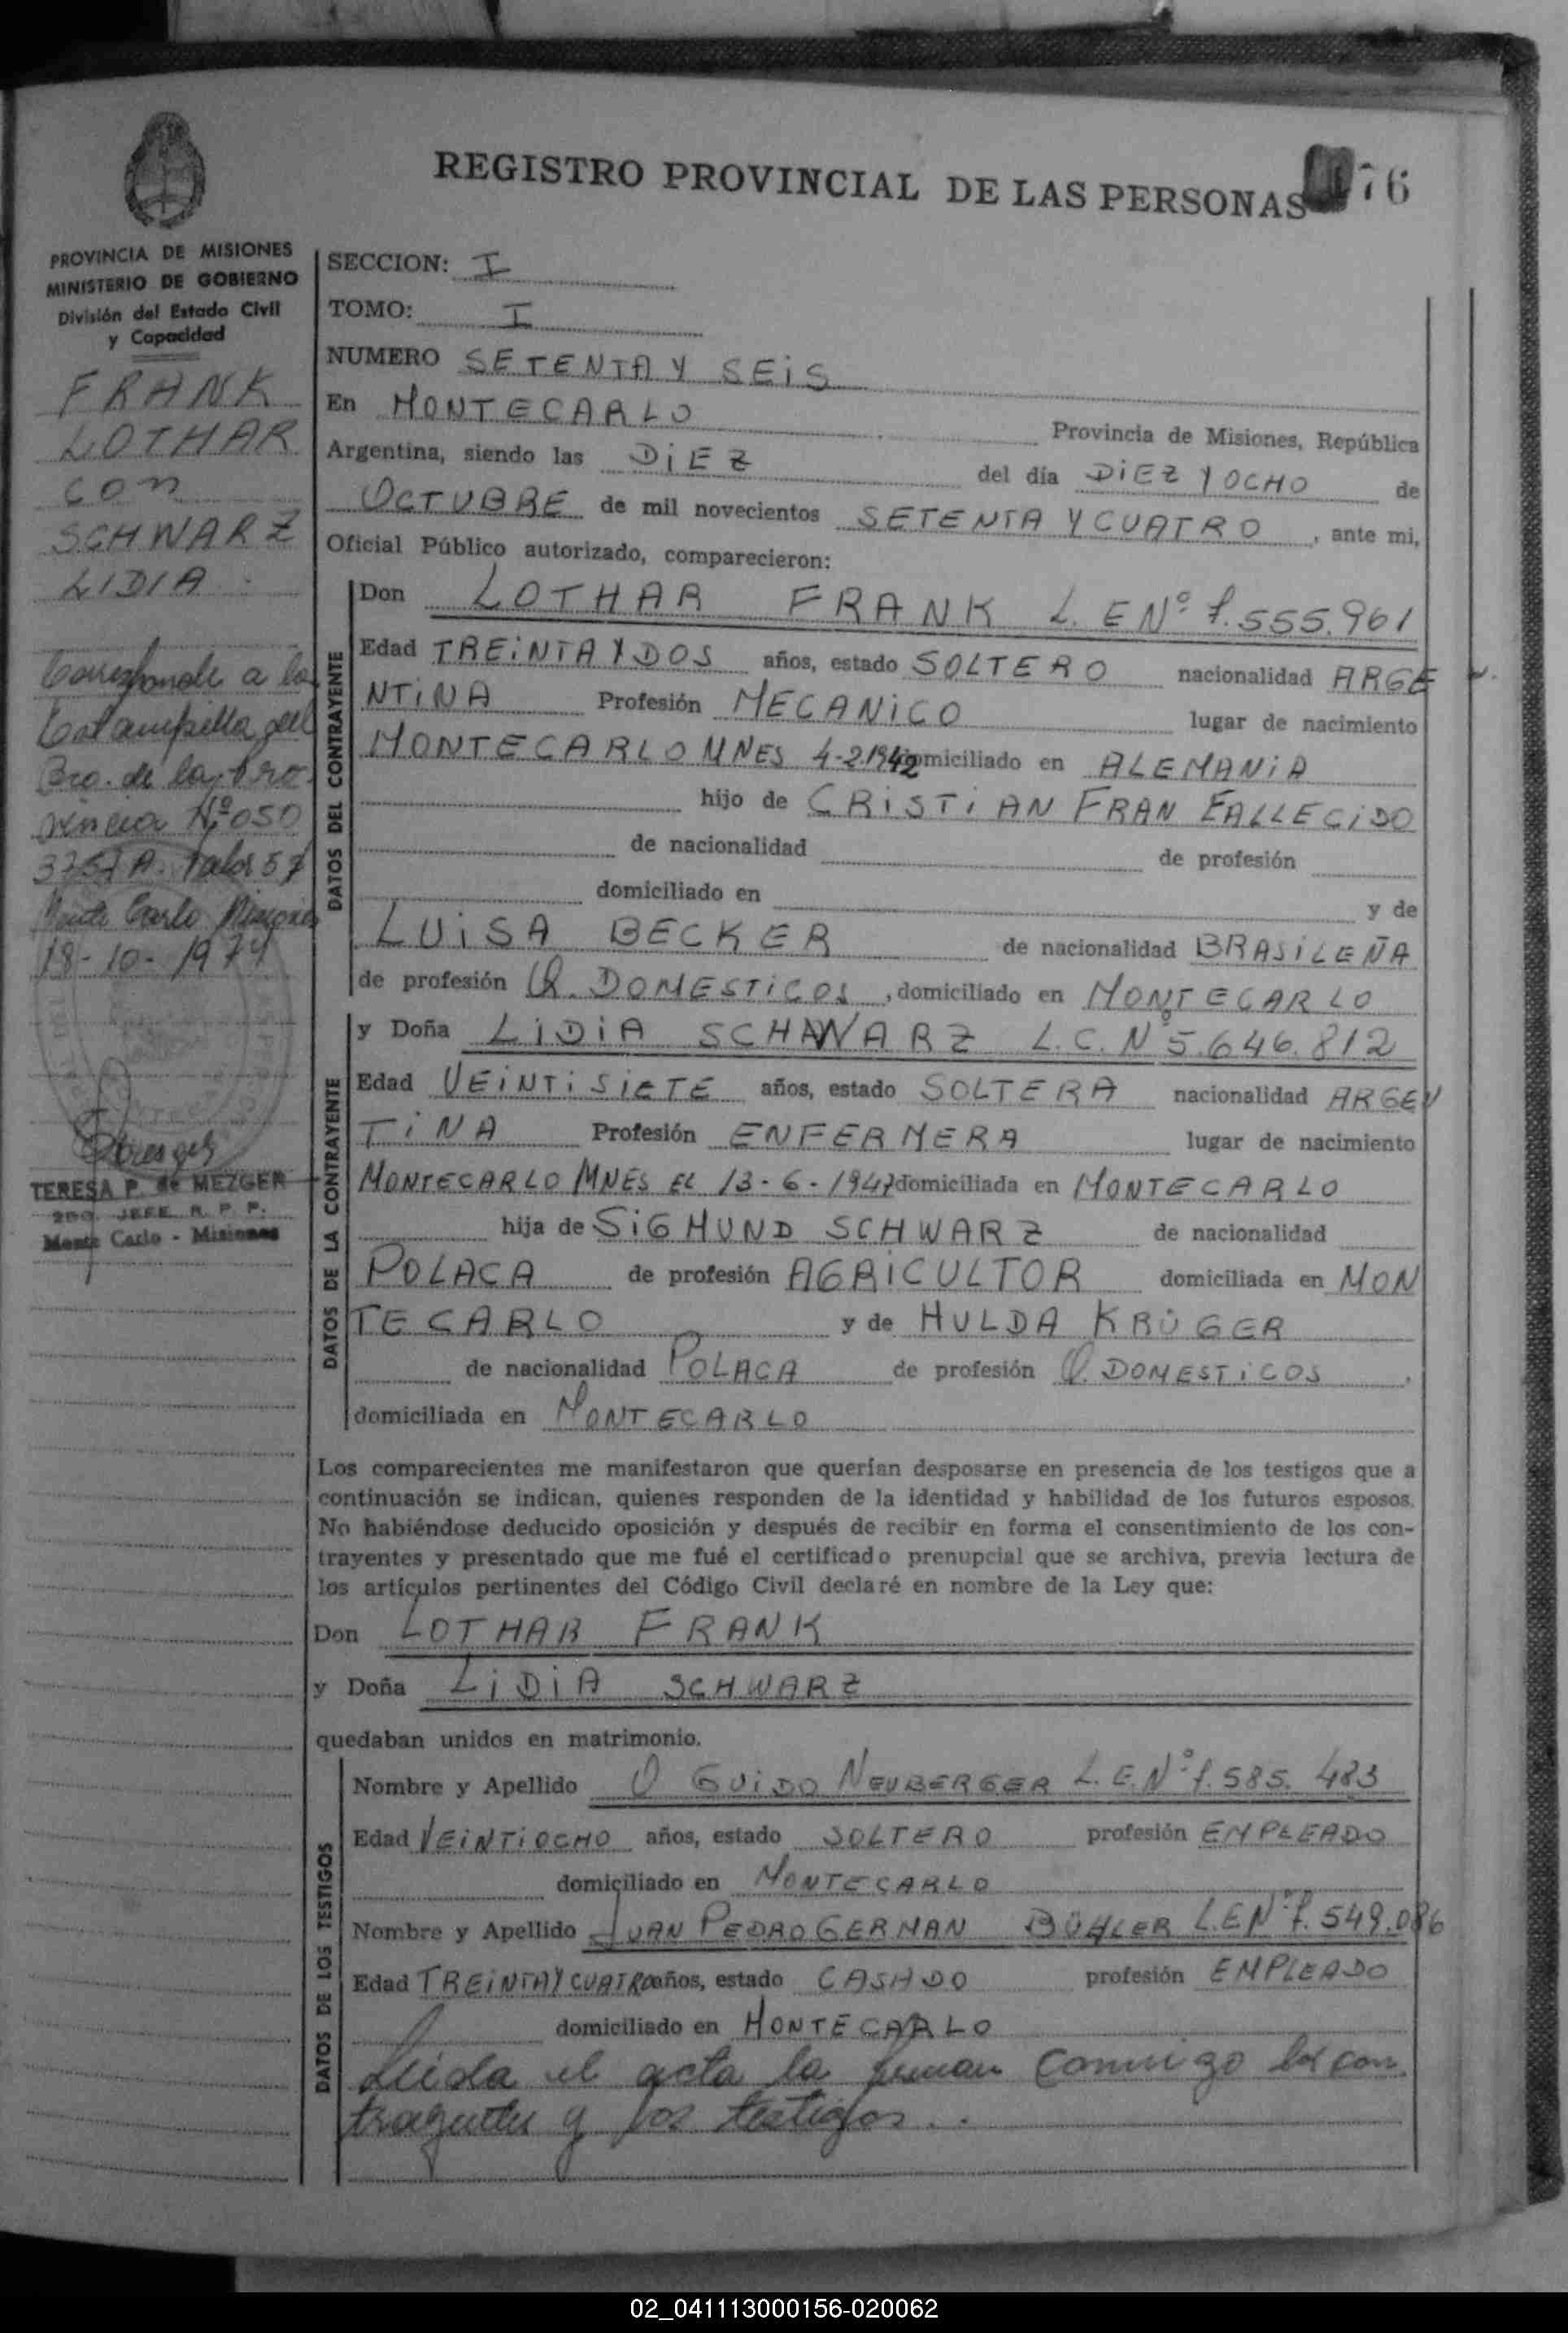 REGISTRO PROVINCIAL DE LAS PERSONAS 76
PROVINCIA DE MISIONES
MINISTERIO DE GOBIERNO
División del Estado Civil
y Capacidad
FRANK
LOTHAR
con
SCHWARZ
LIDIA
Corresponde a la
Estampilla del
Bco. de la Pro-
vincia Nº 050
3757 A. Valor 5 $
Monte Carlo Misiones
18-10-1974
TERESA P. de MEZGER
JEFE R. P. P.
Monte Carlo - Misiones
SECCION: I
TOMO: I
NUMERO SETENTA Y SEIS
En MONTECARLO Provincia de Misiones, República
Argentina, siendo las DIEZ del día DIEZ Y OCHO de
OCTUBRE de mil novecientos SETENTA Y CUATRO, ante mi,
Oficial Público autorizado, comparecieron:
DATOS DEL CONTRAYENTE
Don LOTHAR FRANK L. E Nº 7.555.961
Edad TREINTA Y DOS años, estado SOLTERO nacionalidad ARGE
NTINA Profesión MECANICO lugar de nacimiento
MONTECARLO MNES 4-2-1942 domiciliado en ALEMANIA
hijo de CRISTIAN FRAN FALLECIDO
de nacionalidad de profesión
domiciliado en y de
LUISA BECKER de nacionalidad BRASILEÑA
de profesión Q. DOMESTICOS, domiciliado en MONTECARLO
DATOS DE LA CONTRAYENTE
y Doña LIDIA SCHWARZ L.C. Nº 5.646.812
Edad VEINTISIETE años, estado SOLTERA nacionalidad ARGEN
TINA Profesión ENFERMERA lugar de nacimiento
MONTECARLO MNES EL 13-6-1947 domiciliada en MONTECARLO
hija de SIGMUND SCHWARZ de nacionalidad
POLACA de profesión AGRICULTOR domiciliada en MON
TECARLO y de HULDA KRÜGER
de nacionalidad POLACA de profesión Q. DOMESTICOS,
domiciliada en MONTECARLO
Los comparecientes me manifestaron que querían desposarse en presencia de los testigos que a
continuación se indican, quienes responden de la identidad y habilidad de los futuros esposos.
No habiéndose deducido oposición y después de recibir en forma el consentimiento de los con-
trayentes y presentado que me fué el certificado prenupcial que se archiva, previa lectura de
los artículos pertinentes del Código Civil declaré en nombre de la Ley que:
Don LOTHAR FRANK
y Doña LIDIA SCHWARZ
quedaban unidos en matrimonio.
DATOS DE LOS TESTIGOS
Nombre y Apellido O GUIDO NEUBERGER L.E.Nº 7.585.483
Edad VEINTIOCHO años, estado SOLTERO profesión EMPLEADO
domiciliado en MONTECARLO
Nombre y Apellido JUAN PEDRO GERMAN BÜHLER L.E Nº 7.549.086
Edad TREINTA Y CUATRO años, estado CASADO profesión EMPLEADO
domiciliado en MONTECARLO
Leida el acta la firman conmigo los con
trayentes y los testigos..
02_041113000156-020062